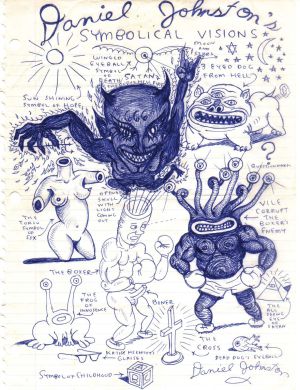 Daniel Johnston's
SYMBOLICAL VISIONS
WINGED
EYEBALL
SYMBOL
OF
DEATH
SATAN
MOON
AND
EYED DOG
FROM HELL
SUN SHINING
SYMBOL OF HOPE
?
QUESTION MARK
OPEN
SKULL WITH
THE
LIGHT
COMING
OUT
THE
TORSO
SYMBOL
OF
SEX
VILE
CORRUPT
THE
BOXER'S
ENEMY
THE BOXER
THE
FROG
OF
INNOCENCE
BONER
THE
ALL
SEEING
EYE
OF
SATAN
GLASSES
THE
CROSS
DEAD DOG'S EYEBALL
SYMBOL OF CHILDHOOD
Daniel Johnston